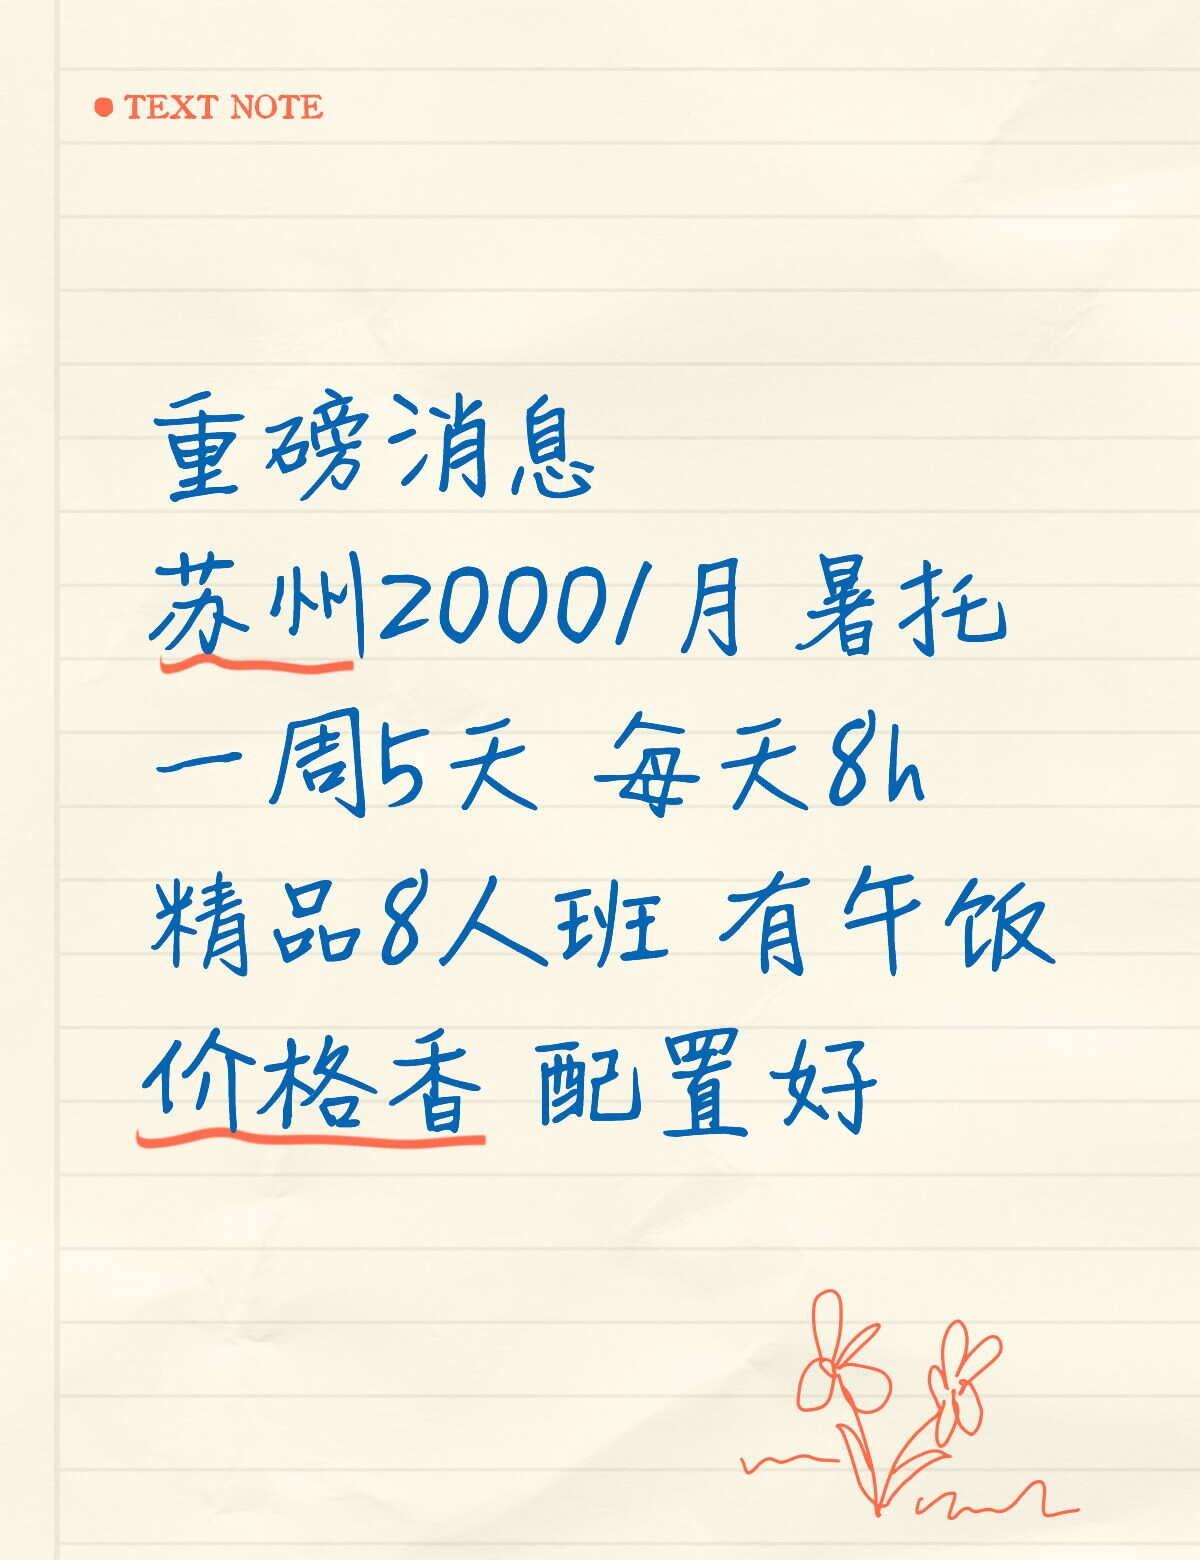 TEXT NOTE
重磅消息
苏州2000/月 暑托
一周5天 每天8h
精品8人班 有午饭
价格香 配置好